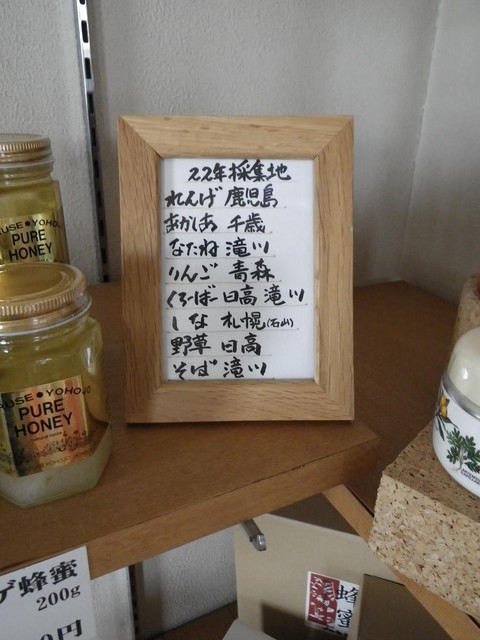 22年採集地
れんげ 鹿児島
あかしあ 千歳
なたね 滝川
りんご 青森
くろーばー 日高 滝川
しな 札幌(石山)
野草 日高
そば 滝川
PURE
HONEY
RUSE●YOHOJO
PURE
HONEY
ゲ蜂蜜
200g
円
蜂蜜